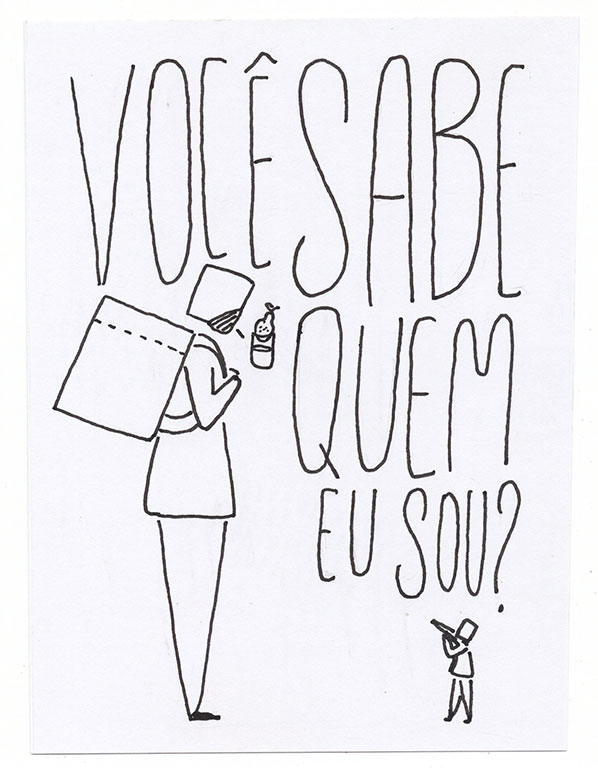 VOCÊ SABE
QUEM
EU SOU?